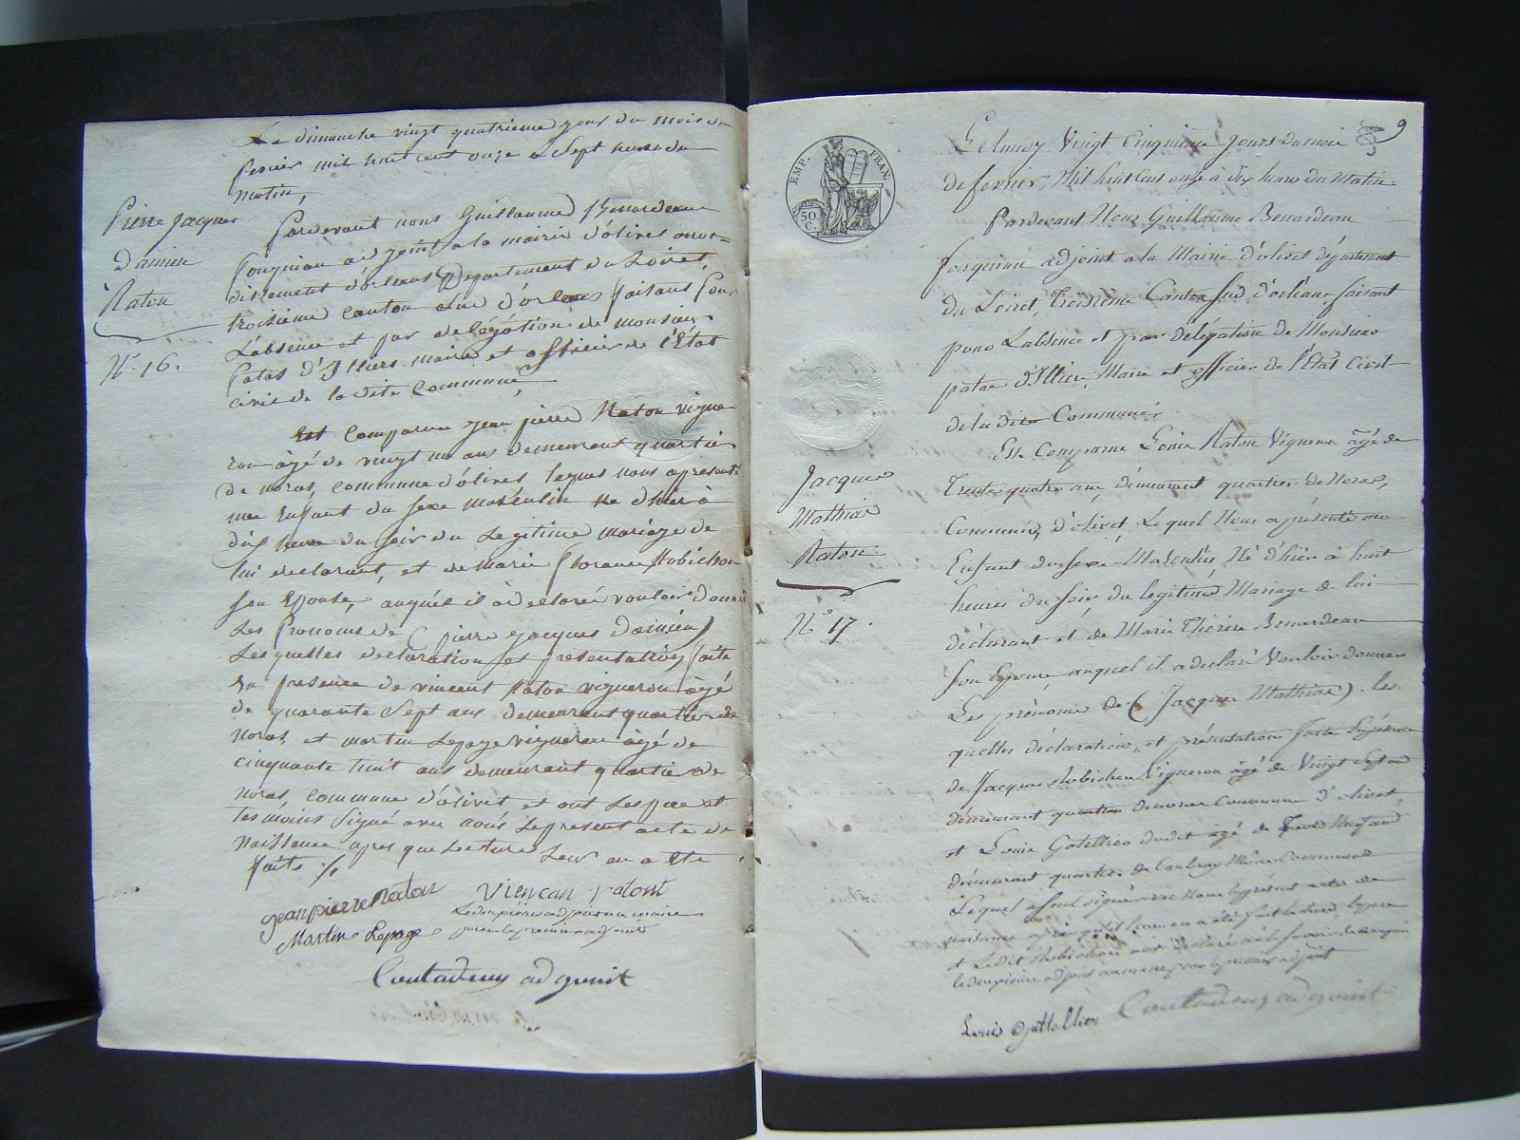 Le dimanche vingt quatrieme jour du mois de
fevrier mil huit cent onze a sept heures du
matin,
Pardevant nous Guillaume Benardeau
adjoint a la mairie d'olivet
d'orleans Departement du Loiret,
troisieme canton Sud d'orleans faisant pour
L'absence et par delégation de monsieur
patas d'Illiers maire et officier de l'État
civil de la dite Commune,
Pierre Jacques
Damien
Ratou
N. 16.
Est comparu jean pierre Ratou vigne
ron âgé de vingt ans demeurant quartier
de noras, commune d'olivet lequel nous a présenté
une enfant du sexe masculin né d'hier à
dix heure du soir du Legitime mariage de
lui declarant, et de marie florance Robichon
son Epouse, auquel il a declaré vouloir donner
Les Prenoms de (pierre jacques Damien)
Lesquelles declaration et présentation faite
En presence de vincent Ratou vigneron âgé
de quarante sept ans demeurant quartier de
noras, et martin Lepage vigneron âgé de
cinquante huit ans demeurant quartier de
noras, commune d'olivet et ont Les pere et
temoins signé avec nous Le present acte de
naissance apres que Lecture Leur en a Eté
faite ./.
jean pierre Ratou
Viencan ratout
Martin Lepage
Coutadeux adjouint
9
EMP. FRAN.
50 C.
Le Lundy Vingt Cinquieme jour du mois
de fevrier, Mil huit Cent onze à dix heures du Matin
Pardevant Nous Guillaume Benardeau
adjoint a la Mairie d'olivet département
du Loiret, troisieme Canton Sud, d'orléans, faisant
pour L'absence et par délégation de Monsieur
patas d'Illiers, Maire et officier de l'État Civil
de la dite Commune
Est Comparu Louis Ratou Vigneron âgé de
Trente quatre ans, demeurant quartier de Noras,
Commune d'olivet, Lequel Nous a présenté un
Enfant du sexe Masculin Né d'hier à huit
heures du soir du légitime Mariage de lui
déclarant et de Marie Therese Benardeau
son Epouse, auquel il a declaré Vouloir donner
Les prénoms de (Jacques Mathias). les
quelles déclaration, et présentation faite En présence
de Jacques Robichon Vigneron âgé de Vingt sept ans
demeurant quartier de noras Commune d'olivet,
et Louis Gatellier âgé de
demeurant quartier de
Jacques
Mathias
Ratou
N.° 17.
Louis gattellier
Coutadeux adjouint